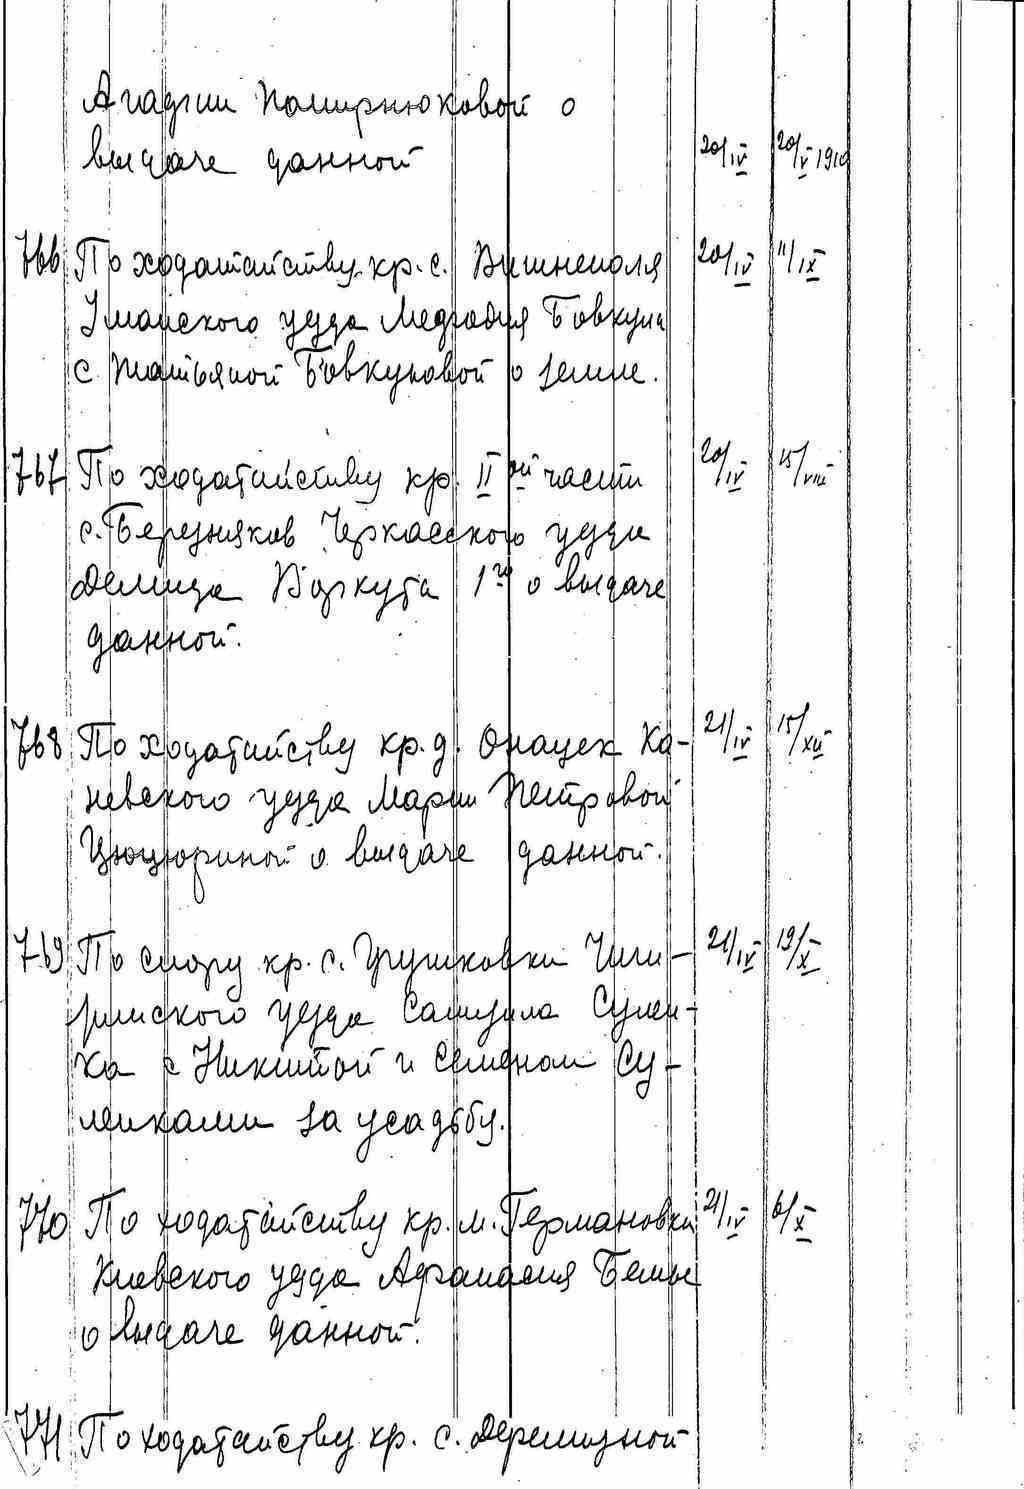 Агафии Помирнюковой о
выдаче данной 20/IV 20/V 1910
766 По ходатайству кр. с. Вишнеполя 20/IV 11/IX
Уманского уезда Мефодия Бовкуна
с Татьяной Бовкуновой о земле.
767 По ходатайству кр. II ой части 20/IV 15/VIII
с. Березняков Черкасского уезда
Демида Воркута 1го о выдаче
данной.
768 По ходатайству кр. д. Онацек Ка- 21/IV 15/XII
невского уезда Марии Петровой
Цюцюриной о выдаче данной.
769 По спору кр. с. Грушковки Чиги- 21/IV 19/X
ринского уезда Самуила Сулей-
ка с Никитой и Семеном Су-
лейками за усадьбу.
770 По ходатайству кр. м. Германовки 21/IV 6/X
Киевского уезда Афанасия Белы
о выдаче данной.
771 По ходатайству кр. с. Деремезной